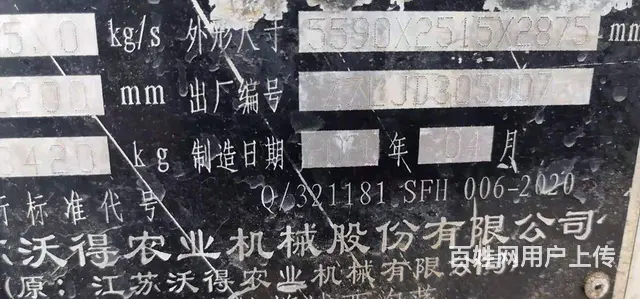 5.0 kg/s 外形尺寸 5590X2515X2875 mm
200 mm 出厂编号
420 kg 制造日期 年 04 月
标准代号 Q/321181 SFH 006-2020
沃得农业机械股份有限公司
(原：江苏沃得农业机械有限公司)
百姓网用户上传